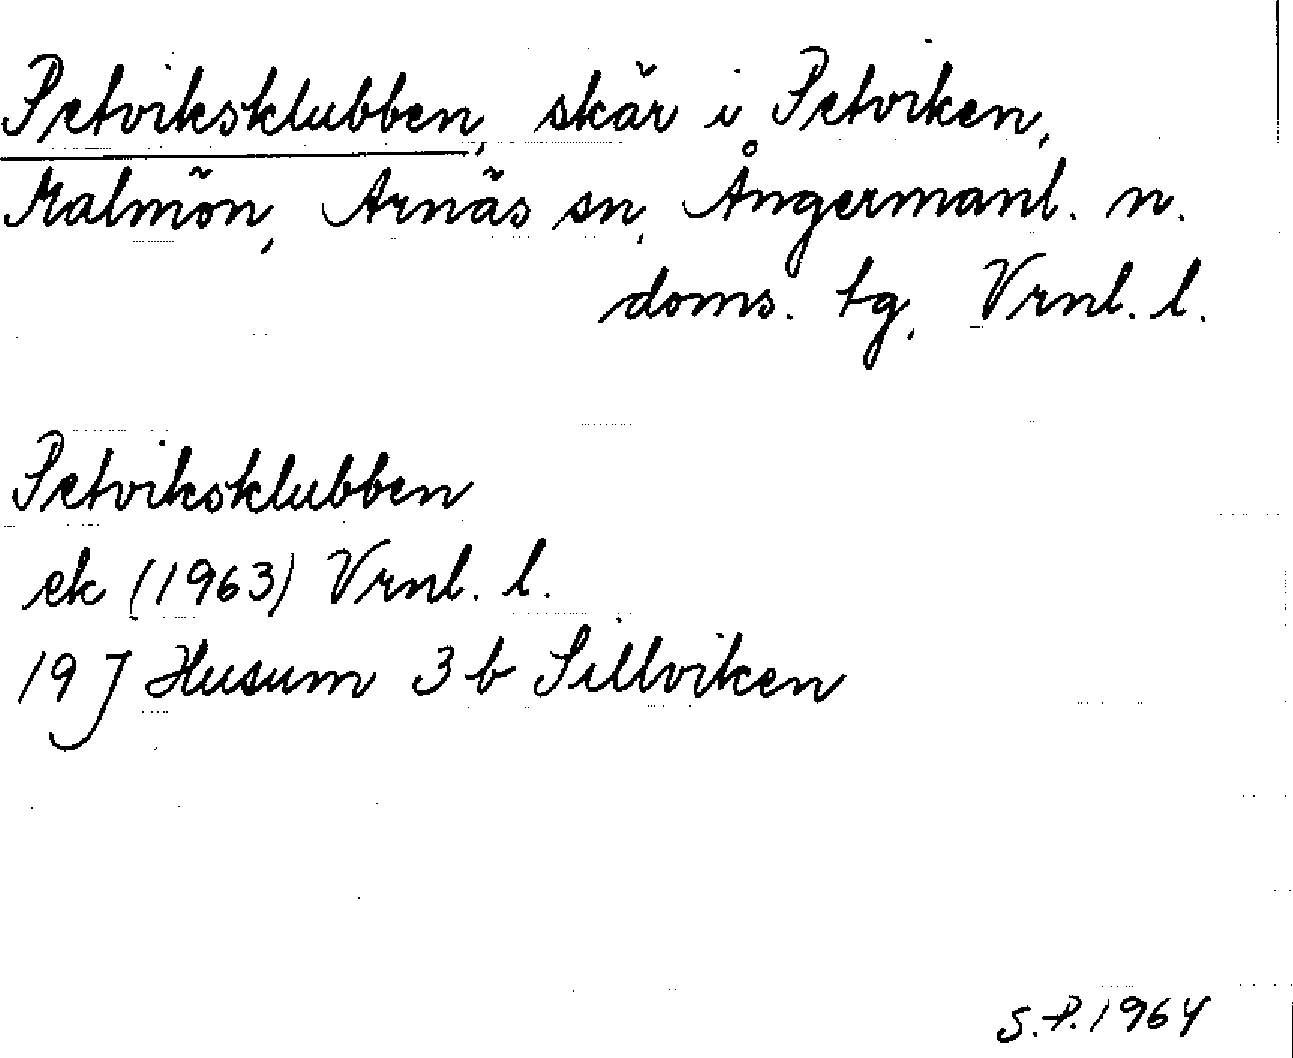 Petviksklubben, skär i Petviken,
Malmön, Arnäs sn, Ångermanl. n.
doms. tg, Vrnl. l.
Petviksklubben
ek (1963) Vrnl. l.
19 J Husum 3 b Sillviken
S.P. 1964